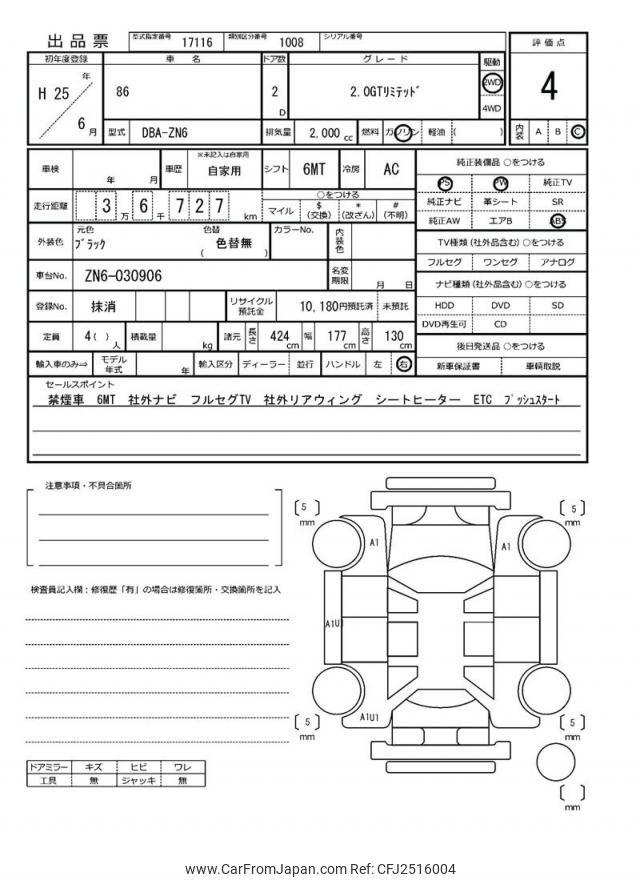 出品票 型式指定番号 17116 類別区分番号 1008 シリアル番号
評価点
4
内装 A B C
初年度登録 車名 ドア数 グレード 駆動
H 25 年 6 月 86 2 D 2.0GTリミテッド 2WD 4WD
型式 DBA-ZN6 排気量 2,000 cc 燃料 ガソリン 軽油 ( )
車検 年 月 車歴 ※未記入は自家用 自家用 シフト 6MT 冷房 AC
走行距離 3 万 6 千 7 2 7 km ○をつける マイル $ (交換) * (改ざん) # (不明)
外装色 元色 ブラック 色替 色替無 ( ) カラーNo. 内装色
車台No. ZN6-030906 名変期限 月 日
登録No. 抹消 リサイクル預託金 10,180円預託済 未預託
定員 4( )人 積載量 kg 諸元 長さ 424 cm 幅 177 cm 高さ 130 cm
輸入車のみ⇒ モデル年式 年 輸入区分 ディーラー 並行 ハンドル 左 右
純正装備品 ○をつける
PS PW 純正TV
純正ナビ 革シート SR
純正AW エアB ABS
TV種類(社外品含む) ○をつける
フルセグ ワンセグ アナログ
ナビ種類(社外品含む) ○をつける
HDD DVD SD
DVD再生可 CD
後日発送品 ○をつける
新車保証書 車輌取説
セールスポイント
禁煙車 6MT 社外ナビ フルセグTV 社外リアウィング シートヒーター ETC プッシュスタート
注意事項・不具合箇所
検査員記入欄：修復歴「有」の場合は修復箇所・交換箇所を記入
ドアミラー キズ ヒビ ワレ
工具 無 ジャッキ 無
[ 5 ] mm
[ 5 ] mm
A1
A1
A1U1
A1U1
[ 5 ] mm
[ 5 ] mm
[ ] mm
www.CarFromJapan.com Ref: CFJ2516004